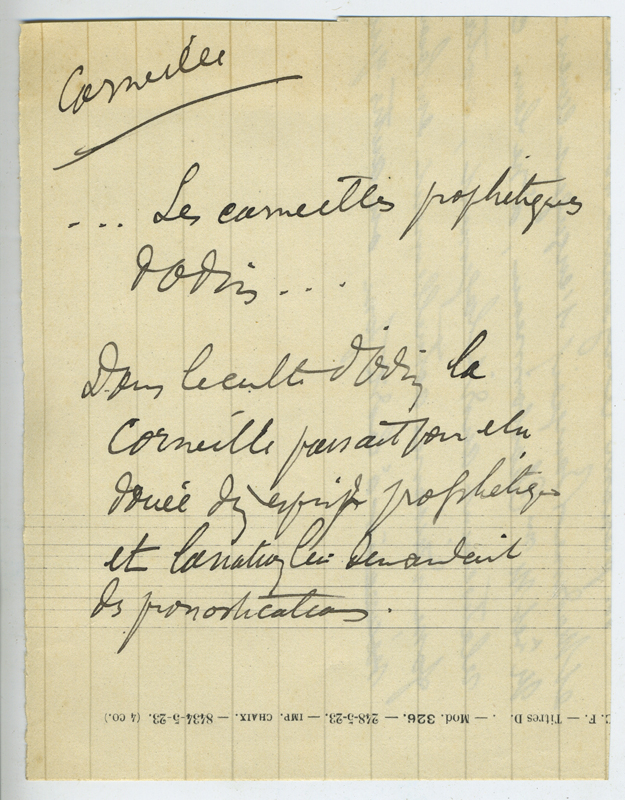 Corneille
... Les corneilles prophétiques
d'Odin ...
Dans le culte d'Odin la
Corneille passait pour être
douée d'un esprit prophétique
et la nation lui demandait
des pronostications.
C. F. — Titres D. . — Mod. 326. — 248-5-23. — IMP. CHAIX. — 8434-5-23. (4 CO.)